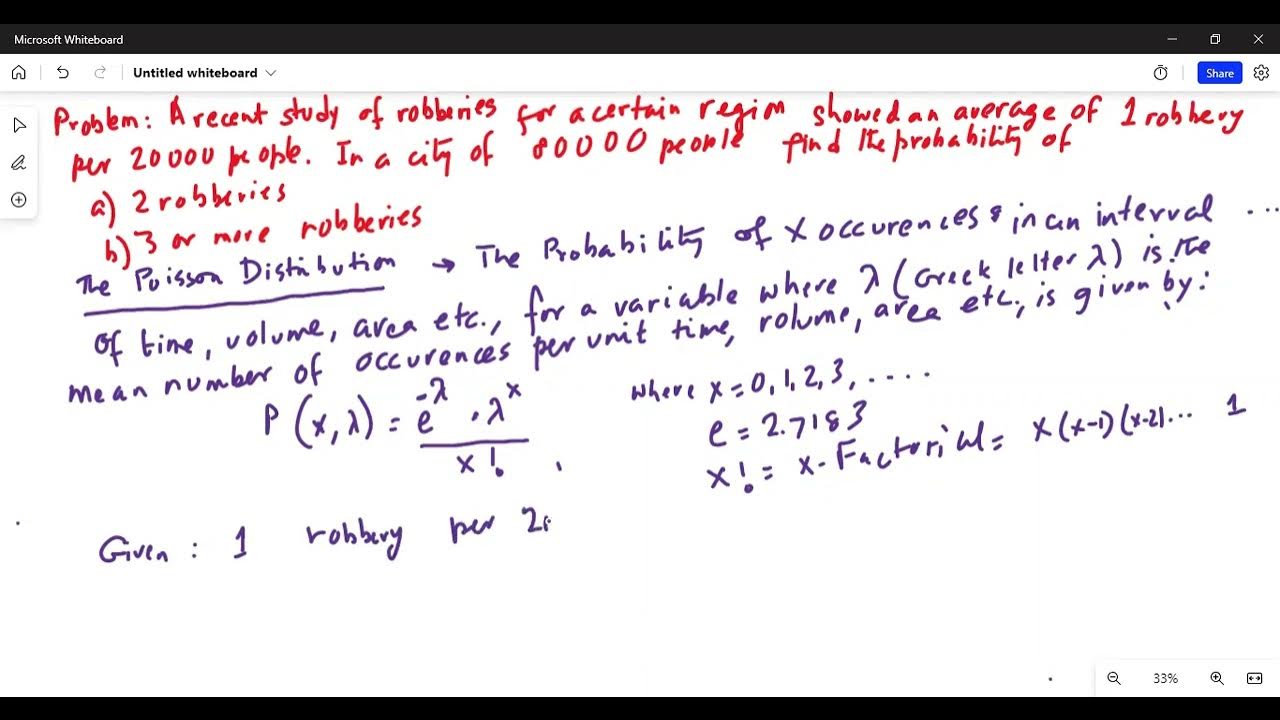 Microsoft Whiteboard
Untitled whiteboard
Share
Problem: A recent study of robberies for a certain region showed an average of 1 robbery
per 20000 people. In a city of 80000 people find the probability of
a) 2 robberies
b) 3 or more robberies
The Poisson Distribution → The Probability of X occurences in an interval ...
of time, volume, area etc., for a variable where λ (Greek letter λ) is the
mean number of occurences per unit time, volume, area etc, is given by:
P(x,λ) = e^-λ . λ^x
x!
where x = 0, 1, 2, 3, ....
e = 2.7183
x! = x-Factorial = x(x-1)(x-2)... 1
Given : 1 robbery per 20
33%